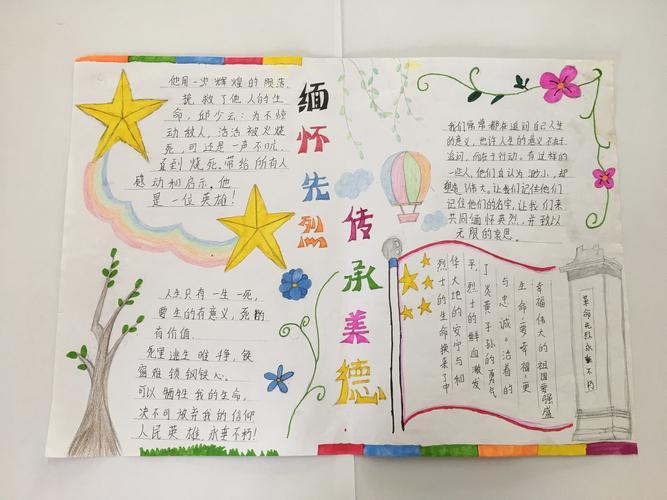 缅怀先烈
传承美德
他用一次辉煌的陨落,
挽救了他人的生
命,邱少云:为不惊
动敌人,活活被火烧
死,可还是一声不吭,
直到烧死。带给所有人
感动和启示。他
是一位英雄!
人生只有一生一死,
要生的有意义,死的
有价值.
死里逃生唯
铁心。
可以牺牲我的生命,
决不可放弃我的信仰
人民英雄永垂不朽!
我们常常都在追问自己人生
的意义,也许人生的意义不在于
追问,而在于行动。有这样的
一些人,他们自认为渺小,却
伟大。让我们记住他们
记住他们的名字,让我们来
共同缅怀英烈,并致以
无限的哀思。
幸福伟大的祖国要强盛
生命要幸福,更
与忠诚。活着的
了炎黄子孙的勇气
平,烈士的鲜血激发
华大地的安宁与和
烈士的生命换来了中
革命先烈永垂不朽